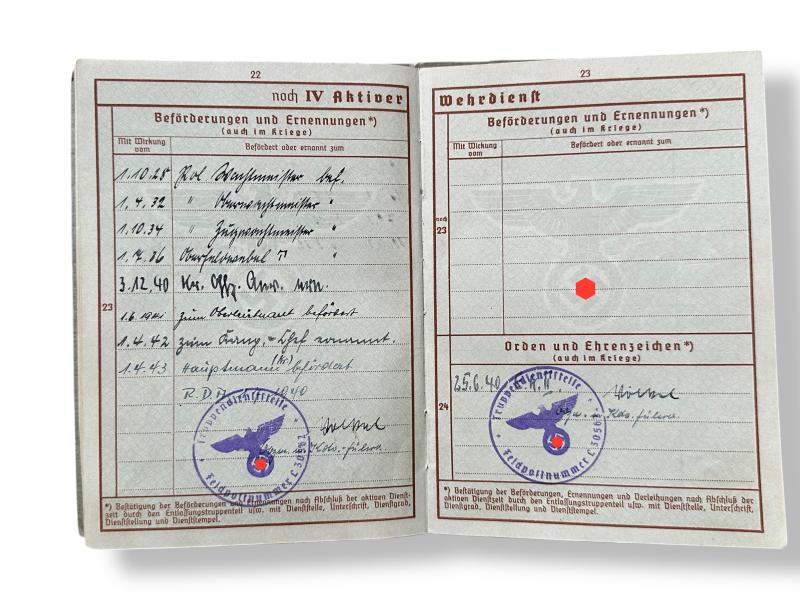 22
noch IV Aktiver
Beförderungen und Ernennungen*)
(auch im Kriege)
Mit Wirkung vom
Befördert oder ernannt zum
1.10.28 Pol Wachtmeister bef.
1.4.32 " Oberwachtmeister "
1.10.34 " Zugwachtmeister "
1.7.36 Oberfeldwebel "
23
3.12.40 Kr. Offz. Anw. ern.
1.6.1941 zum Oberleutnant befördert
1.4.42 zum Komp. Chef ernannt.
1.4.43 Hauptmann (Kr.) befördert
R.D.A. 1940
Truppendienststelle
Feldpostnummer L 30567
*) Bestätigung der Beförderungen, Ernennungen nach Abschluß der aktiven Dienst-
zeit durch den Entlassungstruppenteil usw. mit Dienststelle, Unterschrift, Dienstgrad,
Dienststellung und Dienststempel.
23
Wehrdienst
Beförderungen und Ernennungen*)
(auch im Kriege)
Mit Wirkung vom
Befördert oder ernannt zum
noch
23
Orden und Ehrenzeichen*)
(auch im Kriege)
24
25.6.40 E.K. II
Truppendienststelle
Feldpostnummer L 30567
*) Bestätigung der Beförderungen, Ernennungen und Verleihungen nach Abschluß der
aktiven Dienstzeit durch den Entlassungstruppenteil usw. mit Dienststelle, Unterschrift,
Dienstgrad, Dienststellung und Dienststempel.